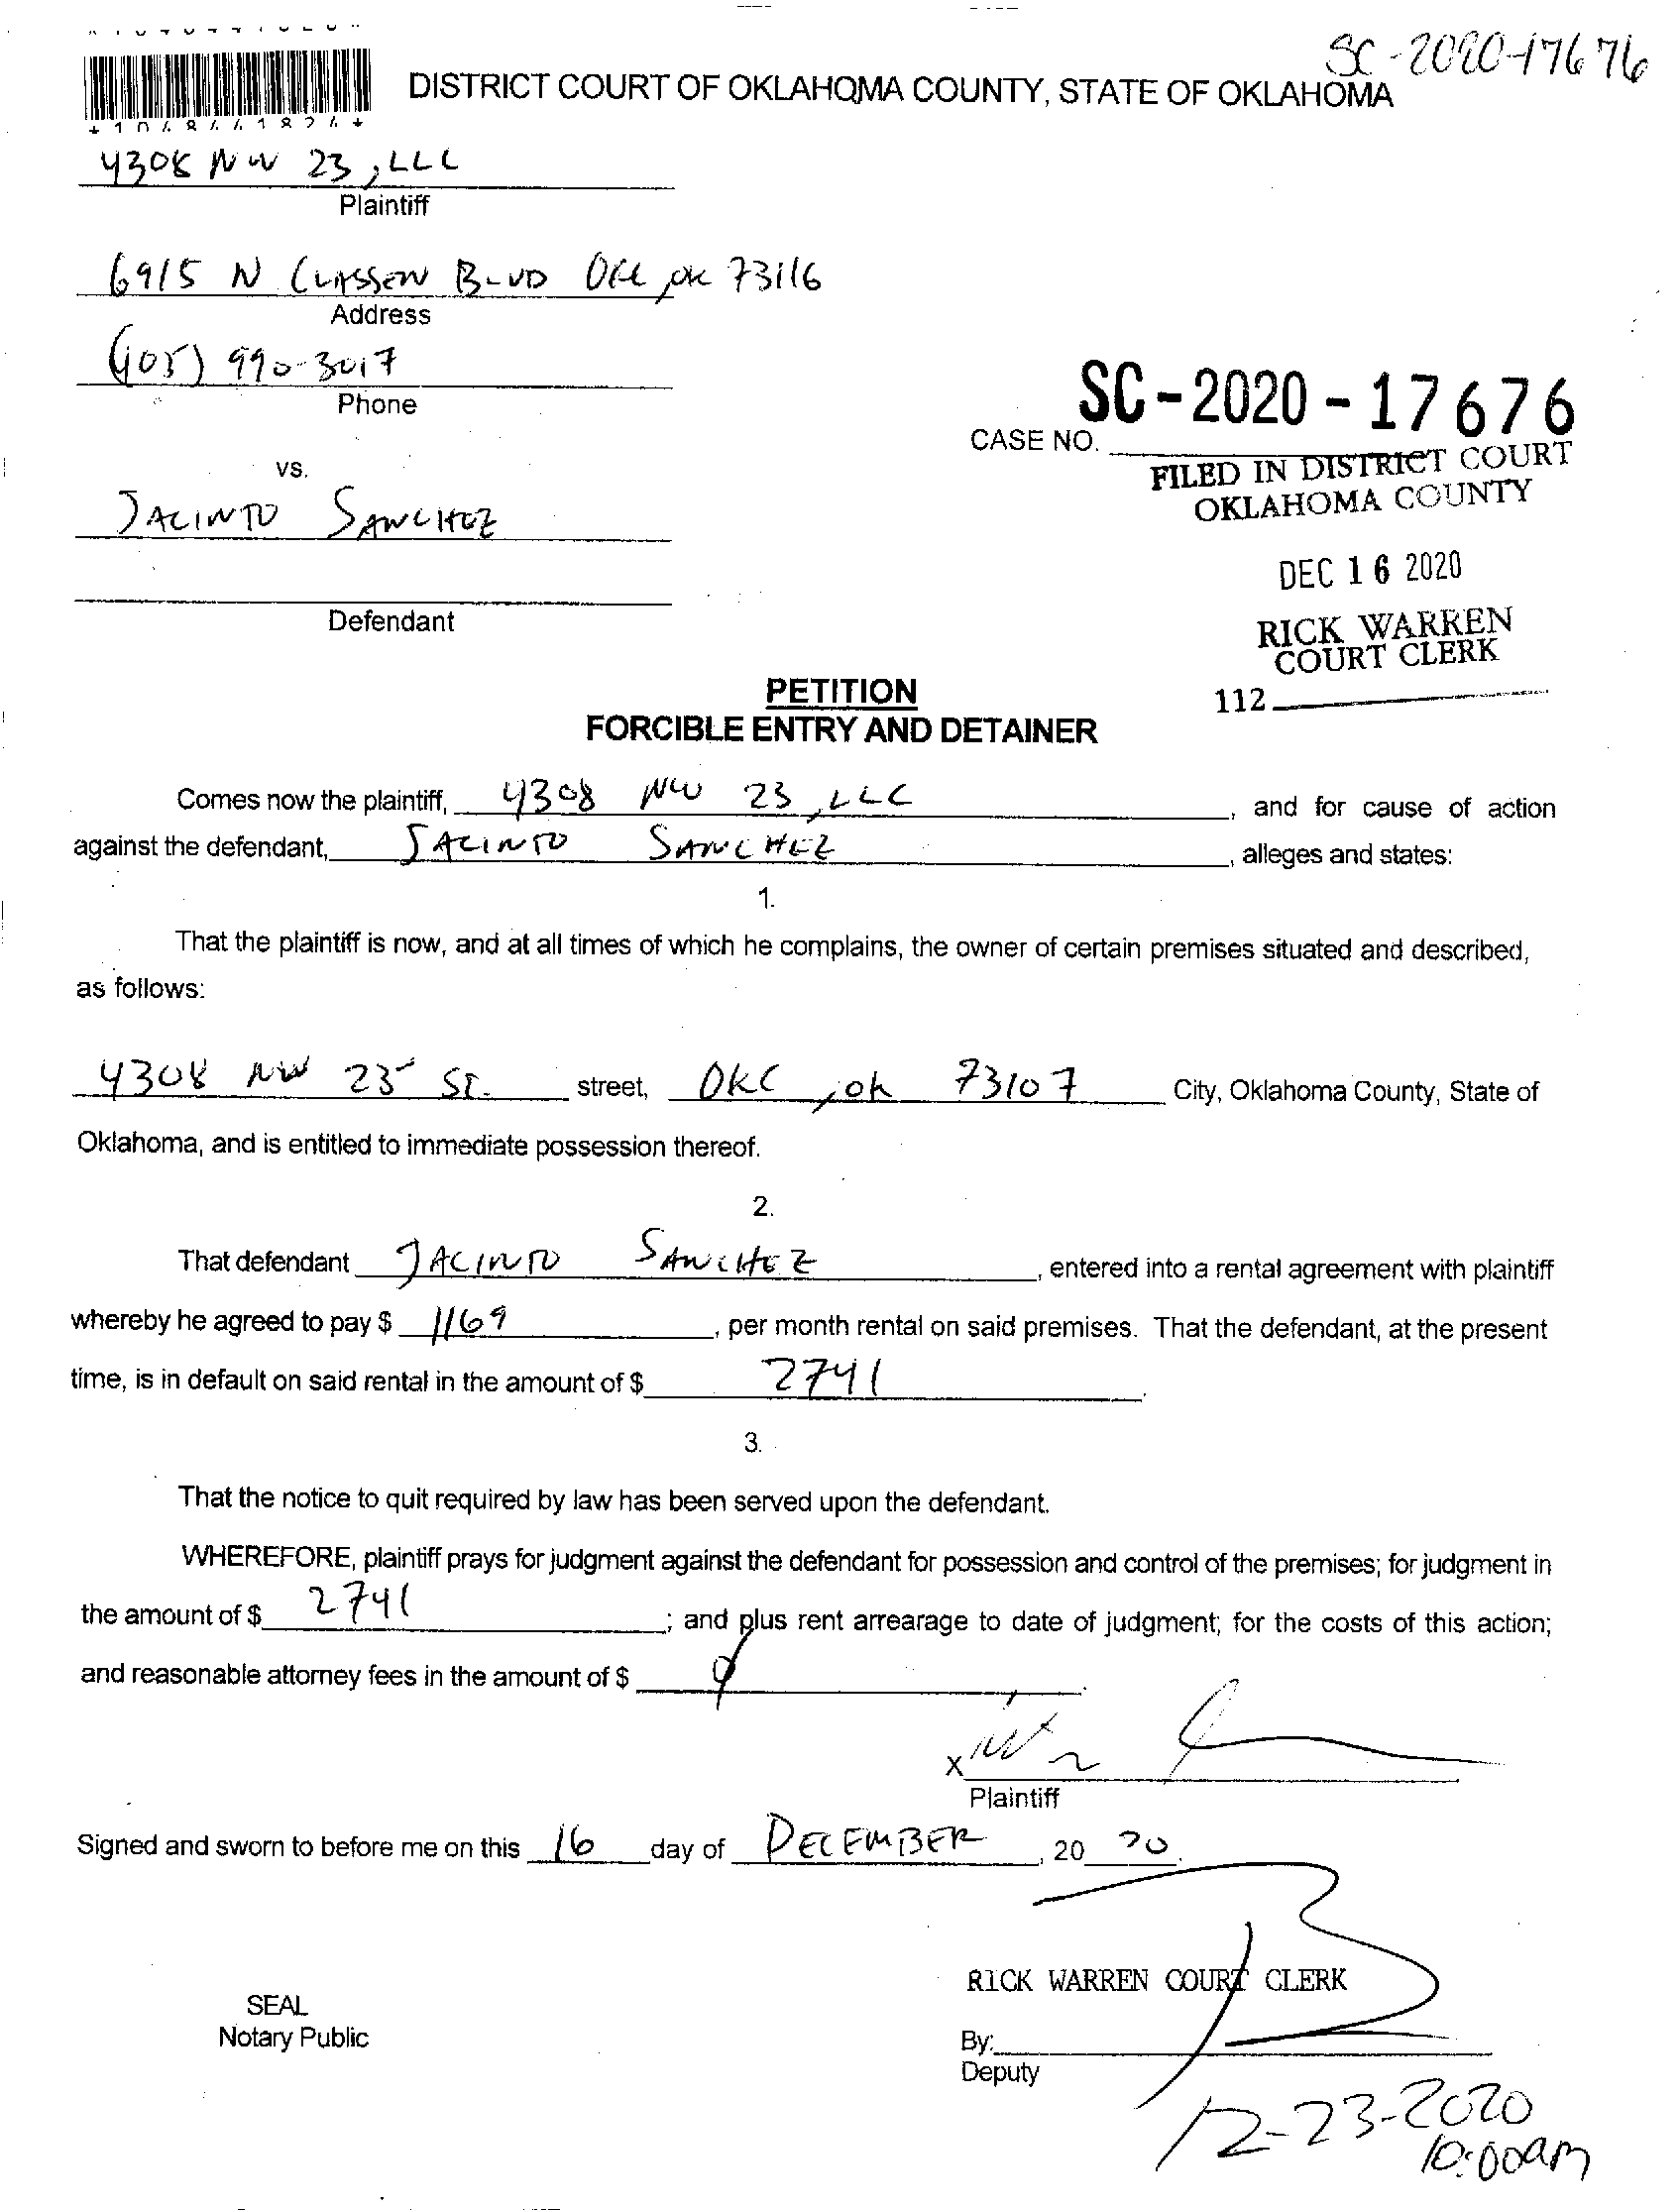 SC-2020-17676
DISTRICT COURT OF OKLAHOMA COUNTY, STATE OF OKLAHOMA
4308 NW 23, LLC
Plaintiff
6915 N CLASSEN BLVD OKC, OK 73116
Address
(405) 990-3017
Phone
SC-2020-17676
CASE NO.
vs.
FILED IN DISTRICT COURT
OKLAHOMA COUNTY
JACINTO SANCHEZ
DEC 16 2020
Defendant
RICK WARREN
COURT CLERK
112
PETITION
FORCIBLE ENTRY AND DETAINER
Comes now the plaintiff, 4308 NW 23, LLC, and for cause of action
against the defendant, JACINTO SANCHEZ, alleges and states:
1.
That the plaintiff is now, and at all times of which he complains, the owner of certain premises situated and described,
as follows:
4308 NW 23rd ST. street, OKC, OK 73107 City, Oklahoma County, State of
Oklahoma, and is entitled to immediate possession thereof.
2.
That defendant JACINTO SANCHEZ, entered into a rental agreement with plaintiff
whereby he agreed to pay $ 1169, per month rental on said premises. That the defendant, at the present
time, is in default on said rental in the amount of $ 2741.
3.
That the notice to quit required by law has been served upon the defendant.
WHEREFORE, plaintiff prays for judgment against the defendant for possession and control of the premises; for judgment in
the amount of $ 2741; and plus rent arrearage to date of judgment; for the costs of this action;
and reasonable attorney fees in the amount of $
X
Plaintiff
Signed and sworn to before me on this 16 day of DECEMBER, 20 20.
RICK WARREN COURT CLERK
SEAL
Notary Public
By:
Deputy
12-23-2020
10:00am